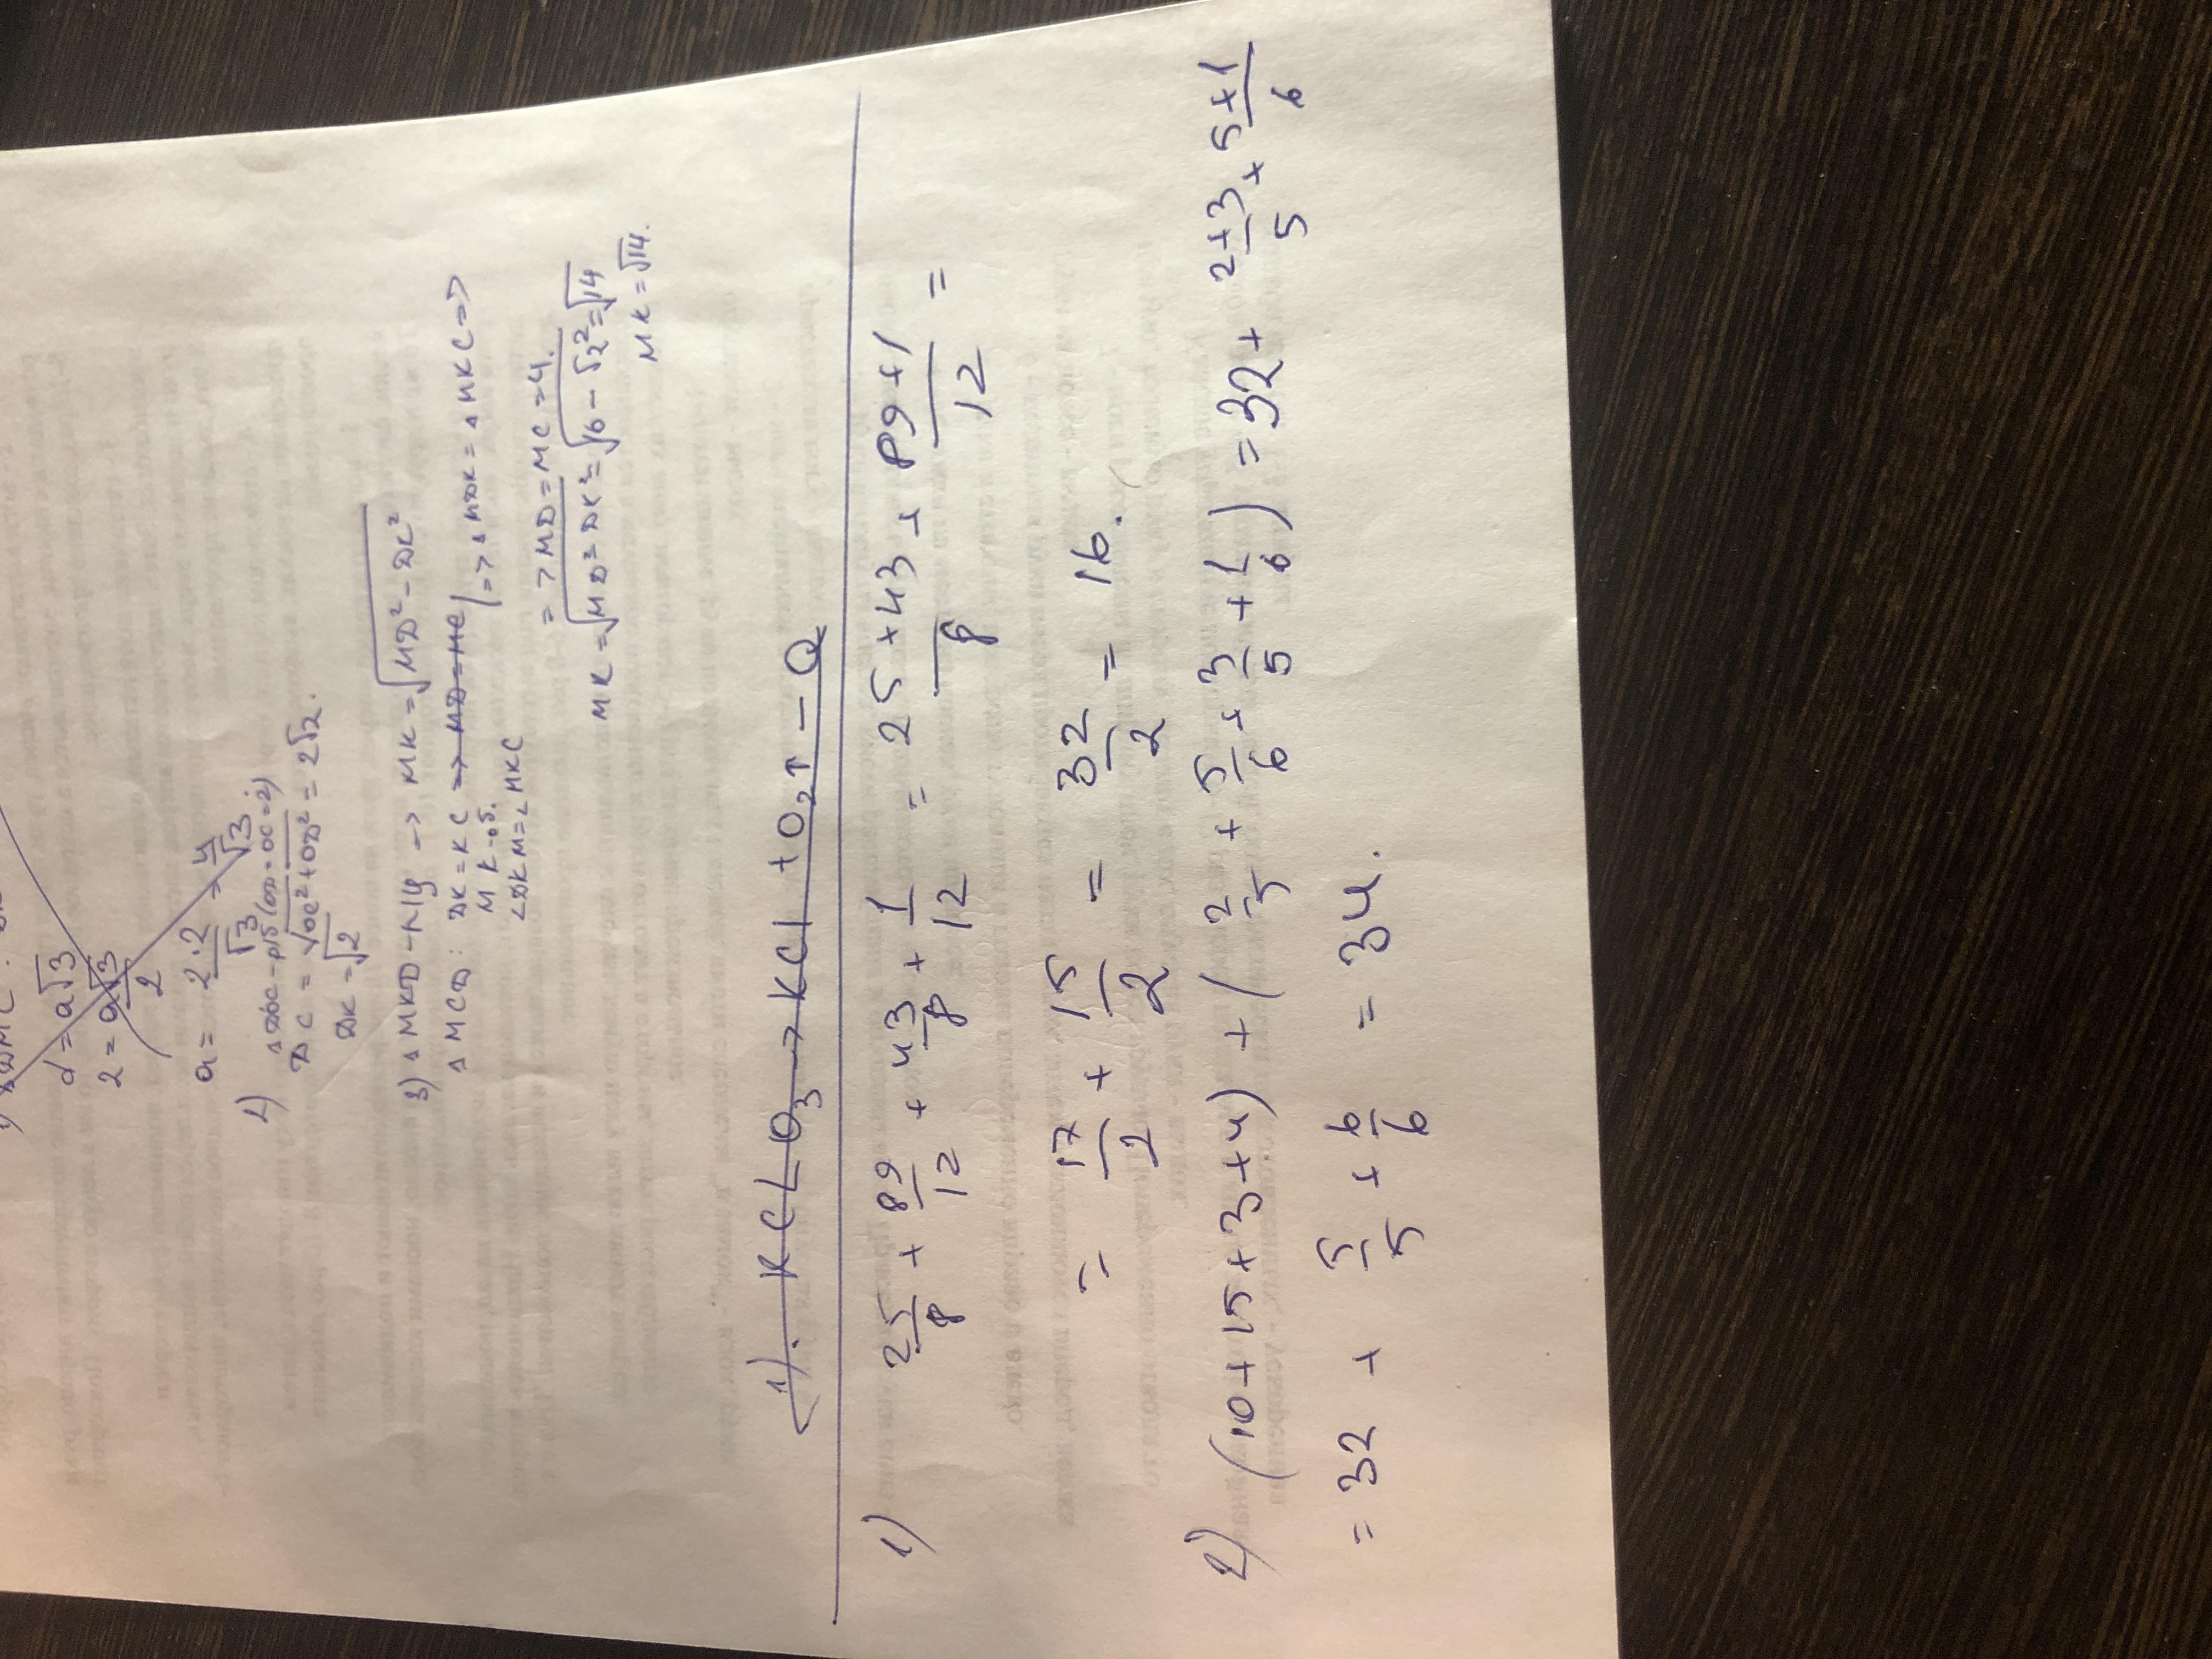 d = a√3
2 = a√3/2
a = 2·2/√3 = 4/√3
2) △DOC - р/б (OD = OC = 2)
DC = √OC²+OD² = 2√2.
DK = √2
3) △MKD - п/у -> MK = √MD² - DK²
△MCD: DK = KC => MD = MC
MK - об. | => △MDK = △MKC =>
∠DKM = ∠MKC
=> MD = MC = 4.
MK = √MD² = DK² = √16 - √2² = √14
MK = √14.
1). KClO₃ -> KCl + O₂↑ - Q
1) 25/8 + 89/12 + 43/8 + 1/12 = 25 + 43/8 + 89 + 1/12 =
= 17/2 + 15/2 = 32/2 = 16.
2) (10 + 15 + 3 + 4) + (2/5 + 5/6 + 3/5 + 1/6) = 32 + 2 + 3/5 + 5 + 1/6
= 32 + 5/5 + 6/6 = 34.